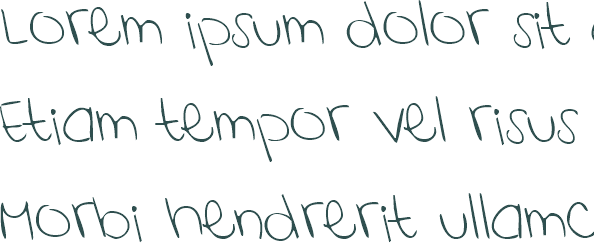 Lorem ipsum dolor sit
Etiam tempor vel risus
Morbi hendrerit ullamc